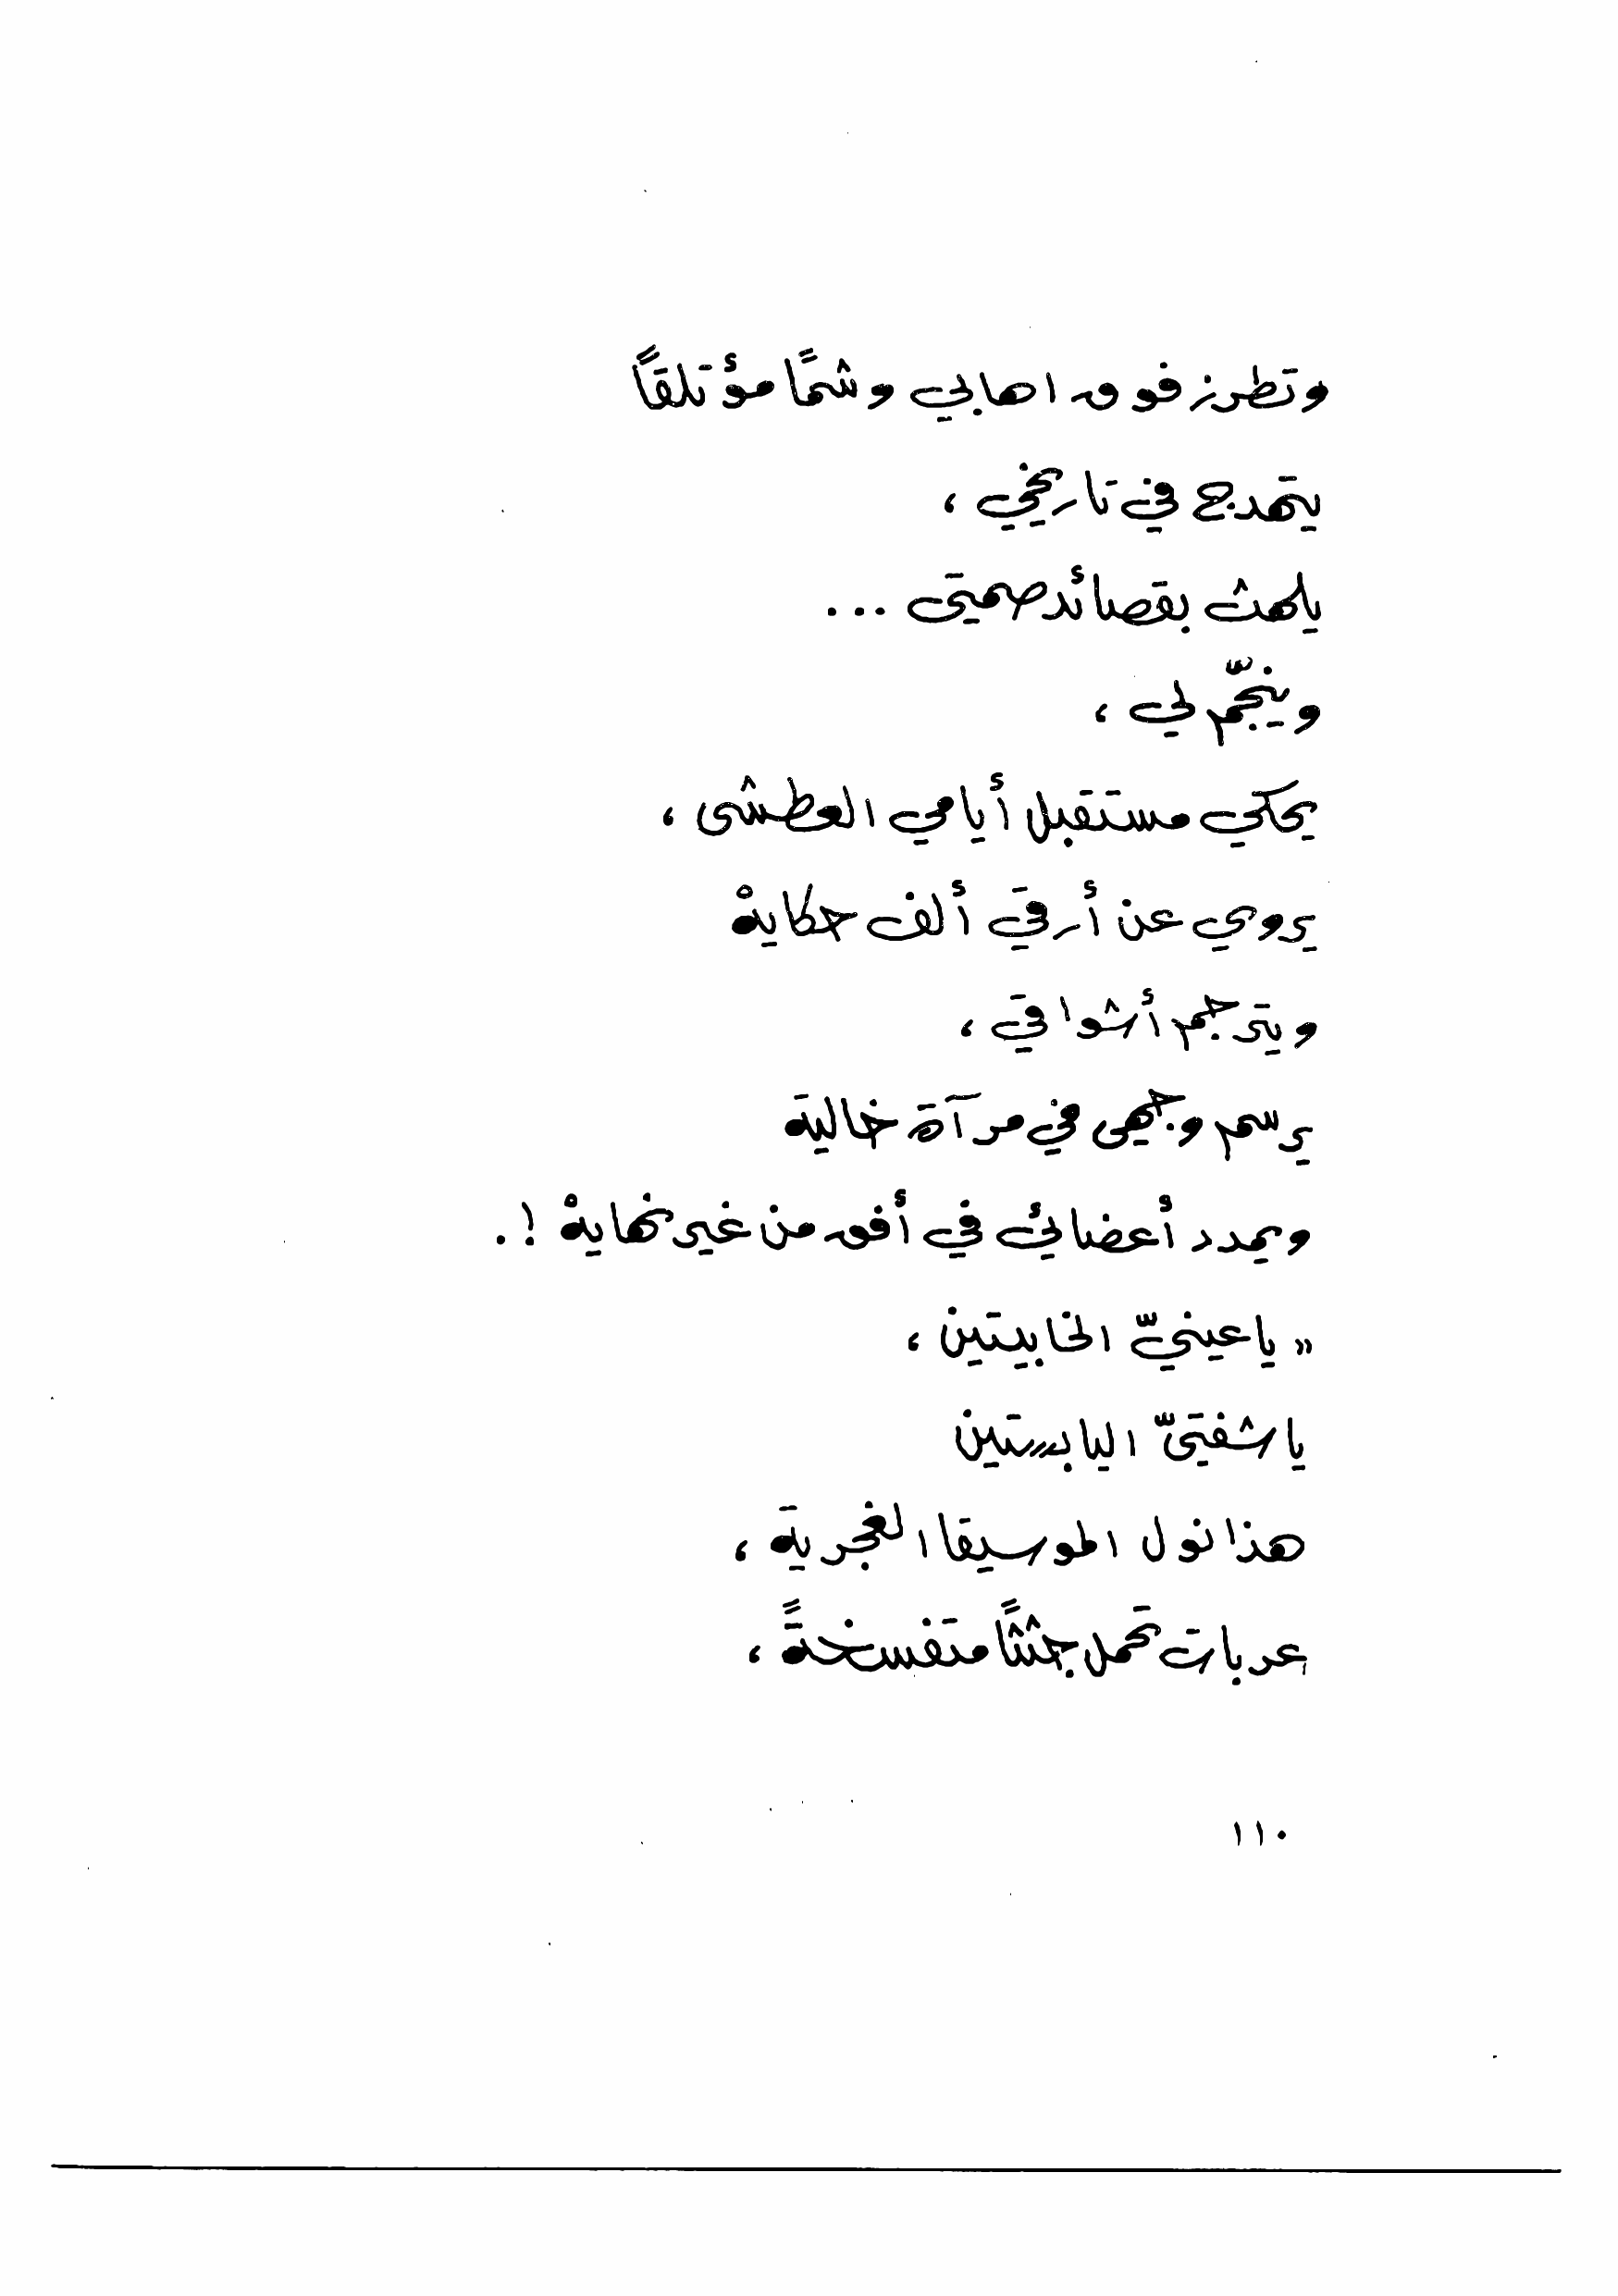 وتطرز فوق اهابي وشمًا مؤتلقاً
يتهدج في تاريخي ،
يلهث بقصائد صمتي ...
وينجّم لي ،
يحكي مستقبل أيامي العطشى ،
يروي عن أرقي ألف حكايهْ
ويترجم أشواقي ،
يرسم وجهي في مرآة خالية
ويمدد أعضائي في أفق من غير نهايهْ !.
« يا عينيّ الخابيتين ،
يا شفتيّ اليابستين
هذا نول الموسيقا الغجرية ،
عربات تحمل جثثًا متفسخةً ،
١١٠